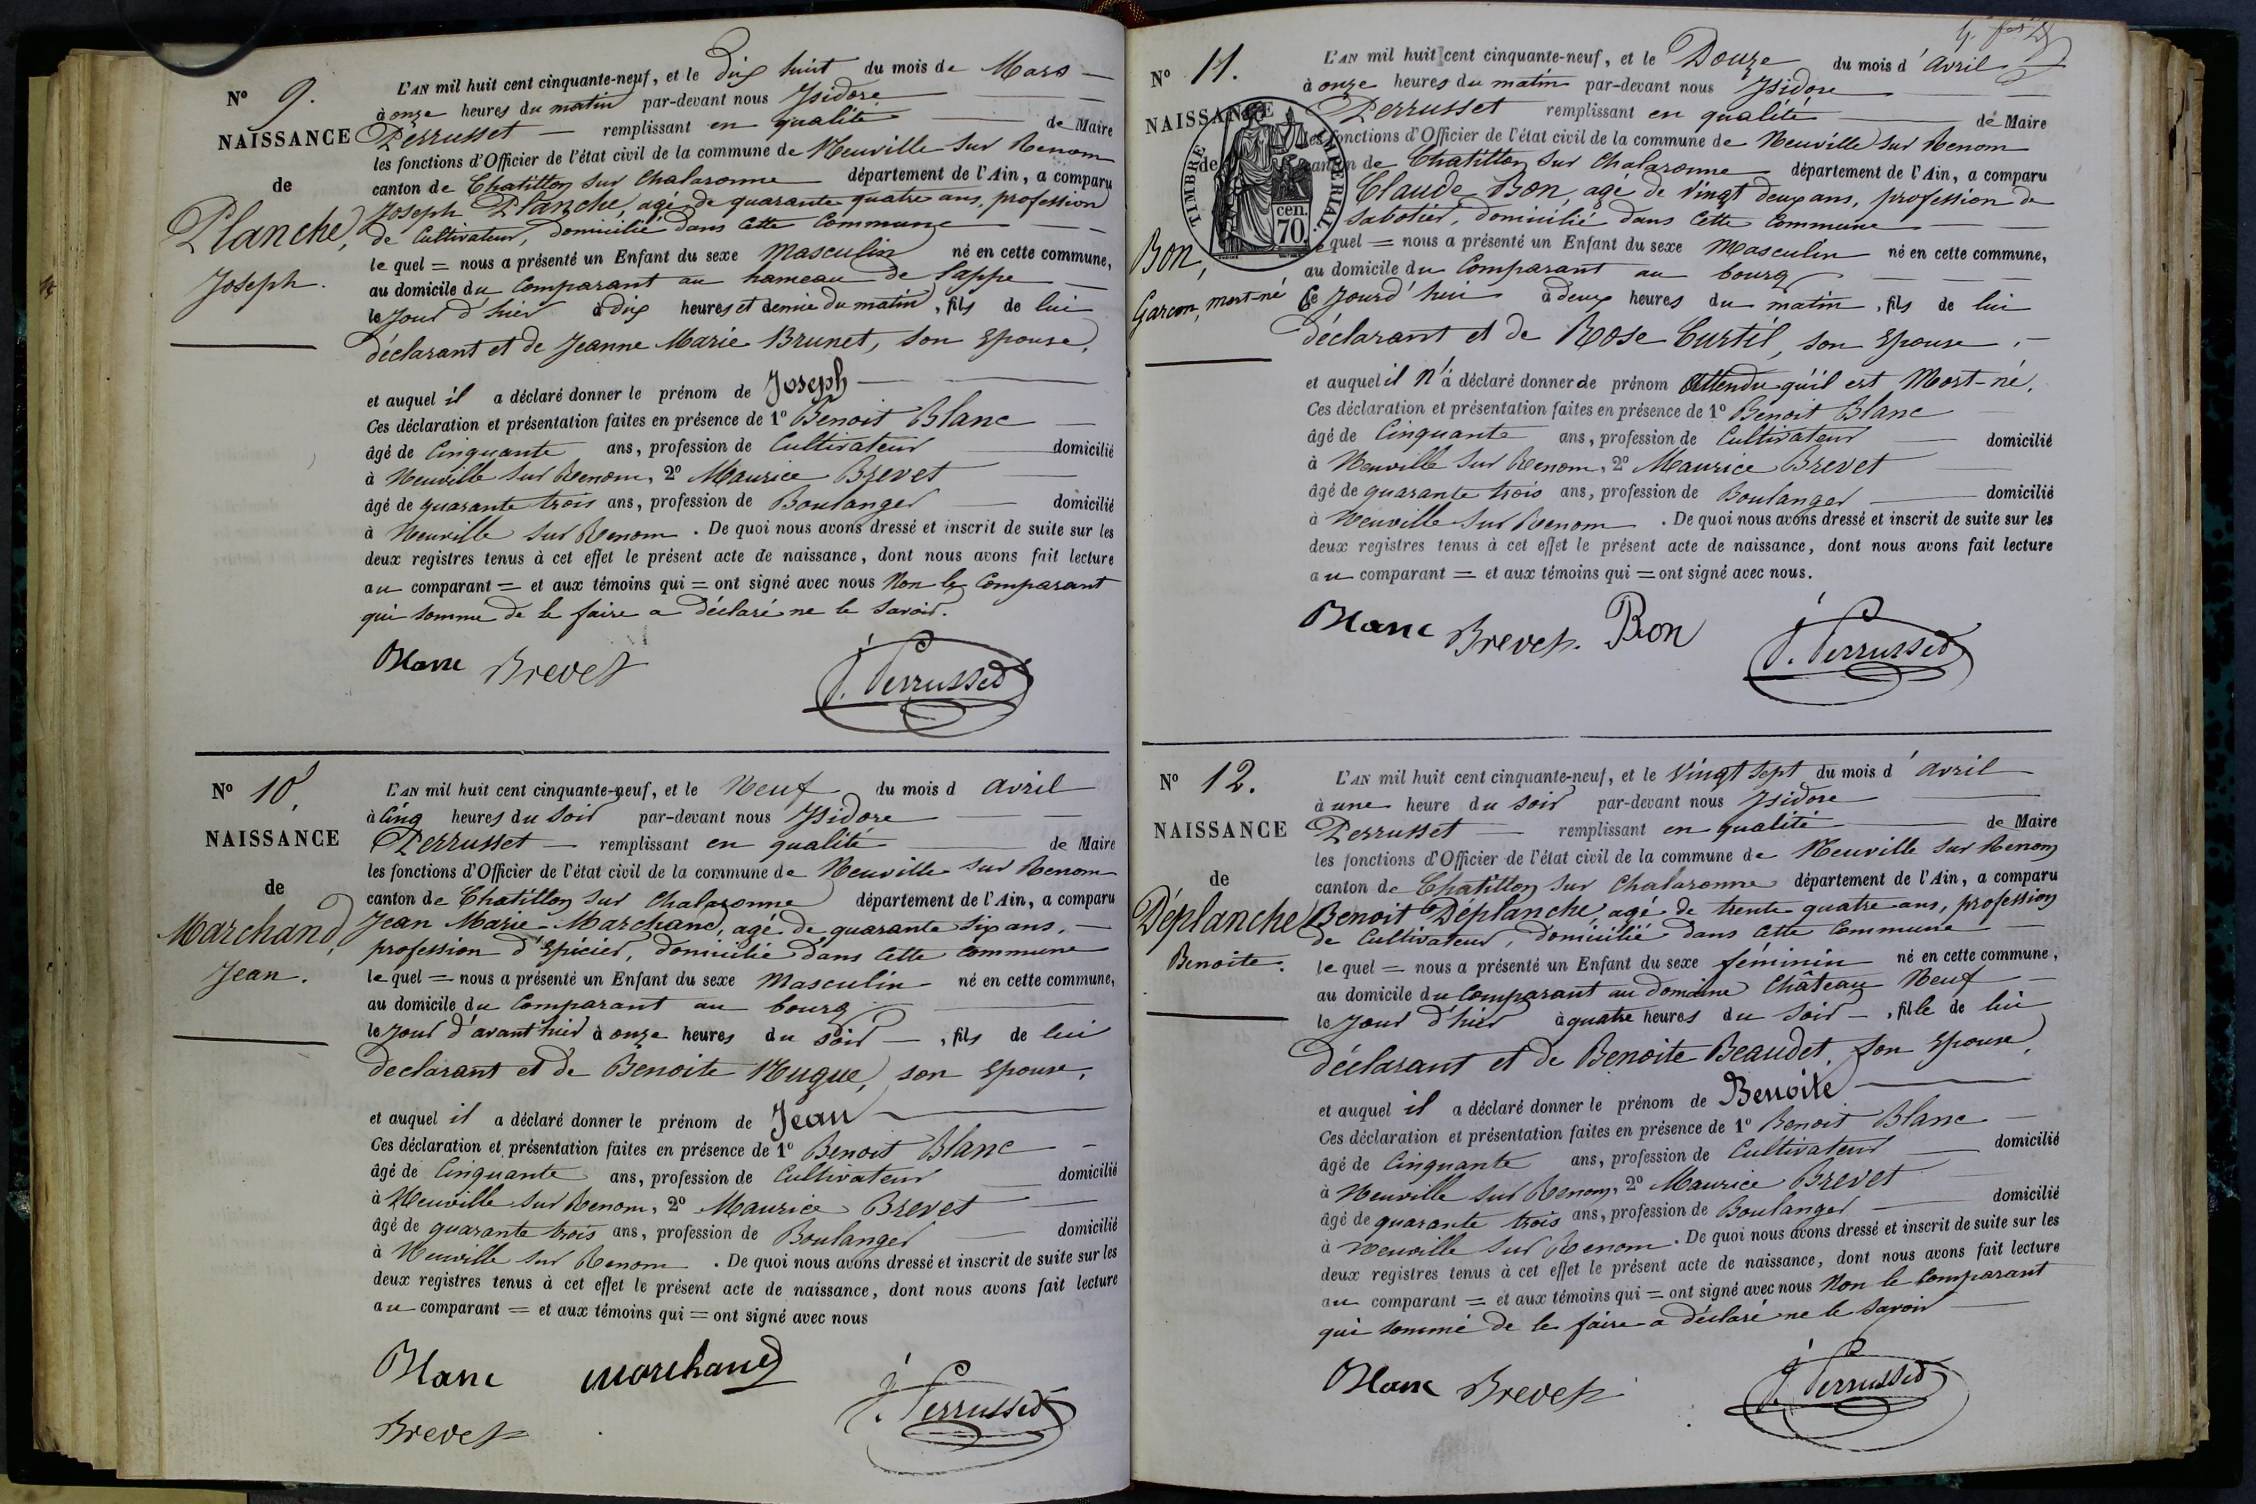 Nº 9.
NAISSANCE
de
Planche,
Joseph.
L'AN mil huit cent cinquante-neuf, et le Dix huit du mois de Mars
à onze heures du matin par-devant nous Isidore
Perrusset remplissant en qualité de Maire
les fonctions d'Officier de l'état civil de la commune de Neuville sur Renom
canton de Chatillon sur Chalaronne département de l'Ain, a comparu
Joseph Planche, agé de quarante quatre ans, profession
de Cultivateur, domicilié dans cette Commune
le quel = nous a présenté un Enfant du sexe Masculin né en cette commune,
au domicile du Comparant au hameau de Lappe
le jour d'hier à dix heures et demie du matin, fils de lui
déclarant et de Jeanne Marie Brunet, son Epouse,
et auquel il a déclaré donner le prénom de Joseph
Ces déclaration et présentation faites en présence de 1º Benoit Blanc
âgé de Cinquante ans, profession de Cultivateur domicilié
à Neuville sur Renom, 2º Maurice Brevet
âgé de quarante trois ans, profession de Boulanger domicilié
à Neuville sur Renom. De quoi nous avons dressé et inscrit de suite sur les
deux registres tenus à cet effet le présent acte de naissance, dont nous avons fait lecture
au comparant = et aux témoins qui = ont signé avec nous Non le Comparant
qui sommé de le faire a déclaré ne le savoir.
Blanc Brevet J. Perrusset
Nº 10.
NAISSANCE
de
Marchand,
Jean.
L'AN mil huit cent cinquante-neuf, et le Neuf du mois d avril
à Cinq heures du soir par-devant nous Isidore
Perrusset remplissant en qualité de Maire
les fonctions d'Officier de l'état civil de la commune de Neuville sur Renom
canton de Chatillon sur Chalaronne département de l'Ain, a comparu
Jean Marie Marchand, agé de quarante six ans,
profession d'Epicier, domicilié dans cette commune
le quel = nous a présenté un Enfant du sexe Masculin né en cette commune,
au domicile du Comparant au bourg
le jour d'avant hier à onze heures du soir, fils de lui
declarant et de Benoite Nugue, son Epouse,
et auquel il a déclaré donner le prénom de Jean
Ces déclaration et présentation faites en présence de 1º Benoit Blanc
âgé de Cinquante ans, profession de Cultivateur domicilié
à Neuville sur Renom, 2º Maurice Brevet
âgé de quarante trois ans, profession de Boulanger domicilié
à Neuville sur Renom. De quoi nous avons dressé et inscrit de suite sur les
deux registres tenus à cet effet le présent acte de naissance, dont nous avons fait lecture
au comparant = et aux témoins qui = ont signé avec nous
Blanc Marchand J. Perrusset
Brevet
Nº 11.
NAISSANCE
de
Bon,
Garcon, mort-né
TIMBRE IMPERIAL.
cen.
70
L'AN mil huit cent cinquante-neuf, et le Douze du mois d'avril
à onze heures du matin par-devant nous Isidore
Perrusset remplissant en qualité de Maire
les fonctions d'Officier de l'état civil de la commune de Neuville sur Renom
canton de Chatillon sur Chalaronne département de l'Ain, a comparu
Claude Bon, agé de vingt deux ans, profession de
Sabotier, domicilié dans cette Commune
le quel = nous a présenté un Enfant du sexe Masculin né en cette commune,
au domicile du Comparant au bourg
Ce jourd'hui à deux heures du matin, fils de lui
déclarant et de Rose Curtil, son Epouse,
et auquel il n'a déclaré donner de prénom Attendu qu'il est Mort-né.
Ces déclaration et présentation faites en présence de 1º Benoit Blanc
âgé de Cinquante ans, profession de Cultivateur domicilié
à Neuville sur Renom, 2º Maurice Brevet
âgé de quarante trois ans, profession de Boulanger domicilié
à Neuville sur Renom. De quoi nous avons dressé et inscrit de suite sur les
deux registres tenus à cet effet le présent acte de naissance, dont nous avons fait lecture
au comparant = et aux témoins qui = ont signé avec nous.
Blanc Brevet. Bon J. Perrusset
Nº 12.
NAISSANCE
de
Déplanche
Benoite.
L'AN mil huit cent cinquante-neuf, et le Vingt sept du mois d'avril
à une heure du soir par-devant nous Isidore
Perrusset remplissant en qualité de Maire
les fonctions d'Officier de l'état civil de la commune de Neuville sur Renom
canton de Chatillon sur Chalaronne département de l'Ain, a comparu
Benoit Déplanche, agé de trente quatre ans, profession
de Cultivateur, domicilié dans cette Commune
le quel = nous a présenté un Enfant du sexe féminin né en cette commune,
au domicile du Comparant au domaine Château Neuf
le jour d'hier à quatre heures du soir, fille de lui
déclarant et de Benoite Beaudet, son Epouse,
et auquel il a déclaré donner le prénom de Benoite
Ces déclaration et présentation faites en présence de 1º Benoit Blanc
âgé de Cinquante ans, profession de Cultivateur domicilié
à Neuville sur Renom, 2º Maurice Brevet
âgé de quarante trois ans, profession de Boulanger domicilié
à Neuville sur Renom. De quoi nous avons dressé et inscrit de suite sur les
deux registres tenus à cet effet le présent acte de naissance, dont nous avons fait lecture
au comparant = et aux témoins qui = ont signé avec nous Non le Comparant
qui sommé de le faire a déclaré ne le savoir
Blanc Brevet J. Perrusset